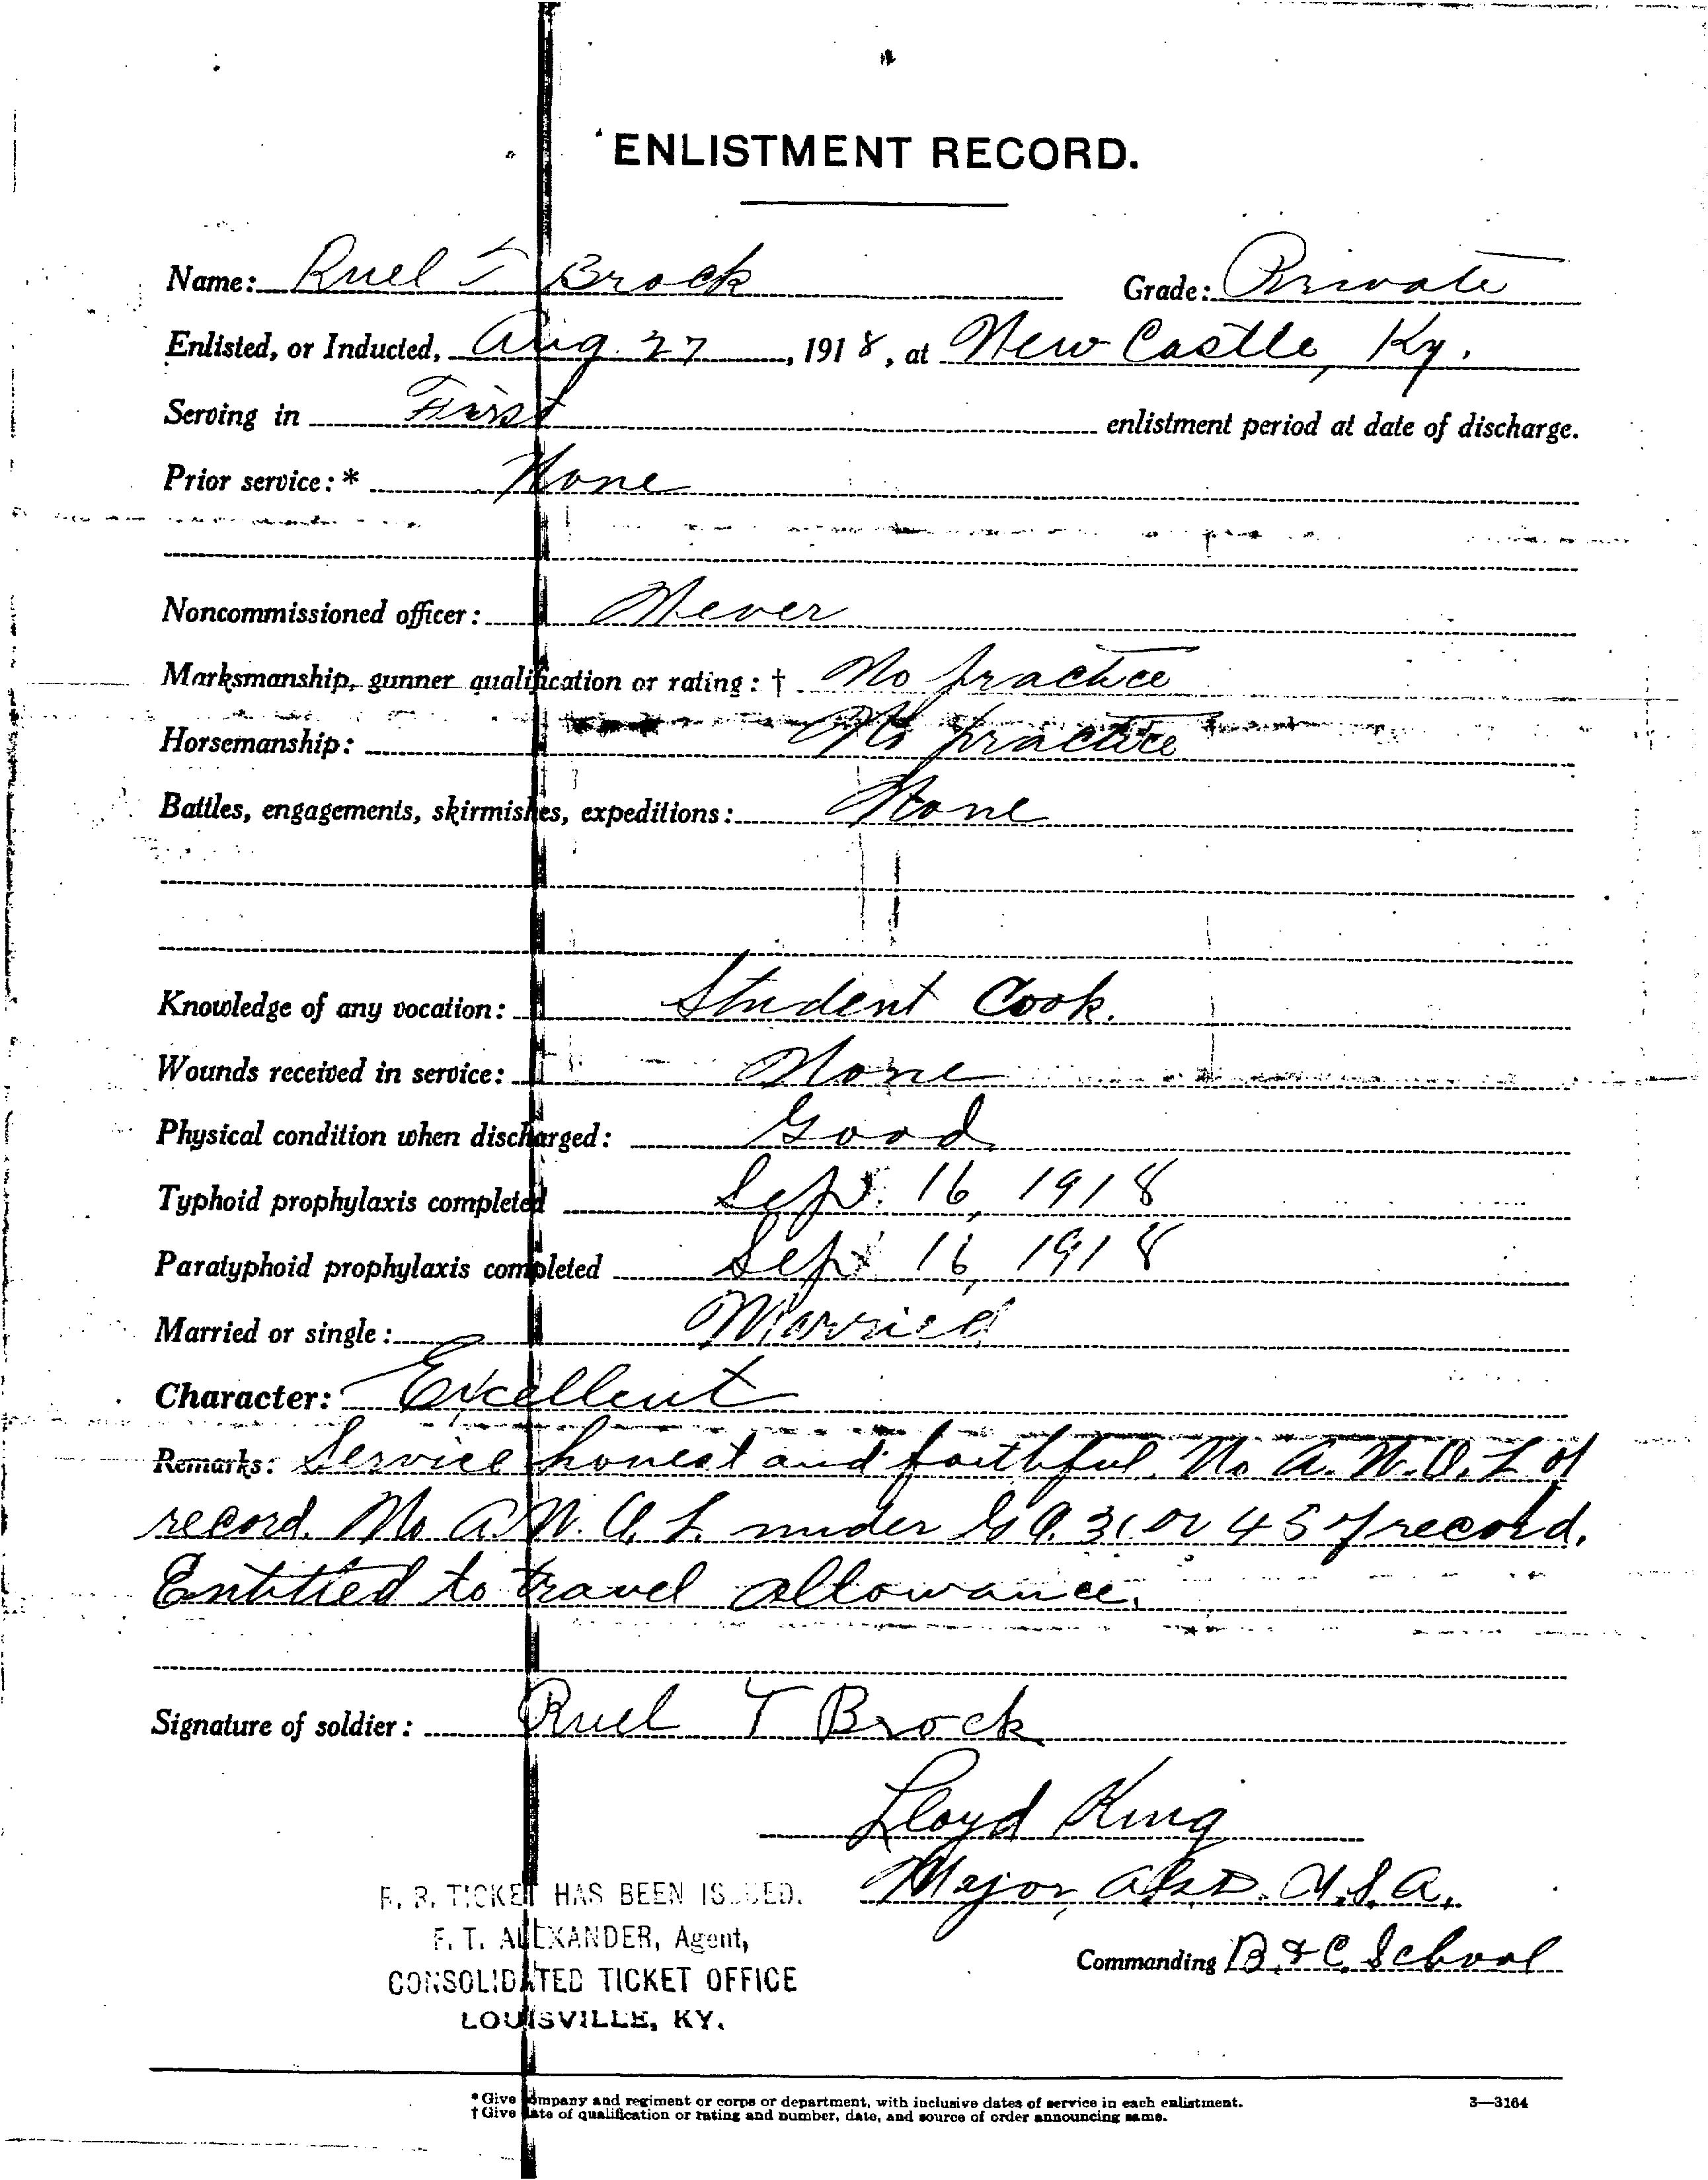 ENLISTMENT RECORD.
Name: Ruel T Brock Grade: Private
Enlisted, or Inducted, Aug. 27, 1918, at New Castle, Ky.
Serving in First enlistment period at date of discharge.
Prior service: * None
Noncommissioned officer: Never
Marksmanship, gunner qualification or rating: † No practice
Horsemanship: No practice
Battles, engagements, skirmishes, expeditions: None
Knowledge of any vocation: Student Cook.
Wounds received in service: None
Physical condition when discharged: Good
Typhoid prophylaxis completed Sept. 16, 1918
Paratyphoid prophylaxis completed Sept 16, 1918
Married or single: Married
Character: Excellent
Remarks: Service honest and faithful. No A.W.O.L of
record. No A.W.O.L. under G.O. 31 or 45 of record.
Entitled to travel allowance.
Signature of soldier: Ruel T Brock
Lloyd King
Major, U.S.A.
Commanding B. & C. School
R. R. TICKET HAS BEEN ISSUED.
F. T. ALEXANDER, Agent,
CONSOLIDATED TICKET OFFICE
LOUISVILLE, KY.
* Give company and regiment or corps or department, with inclusive dates of service in each enlistment.
† Give date of qualification or rating and number, date, and source of order announcing same.
3—3164